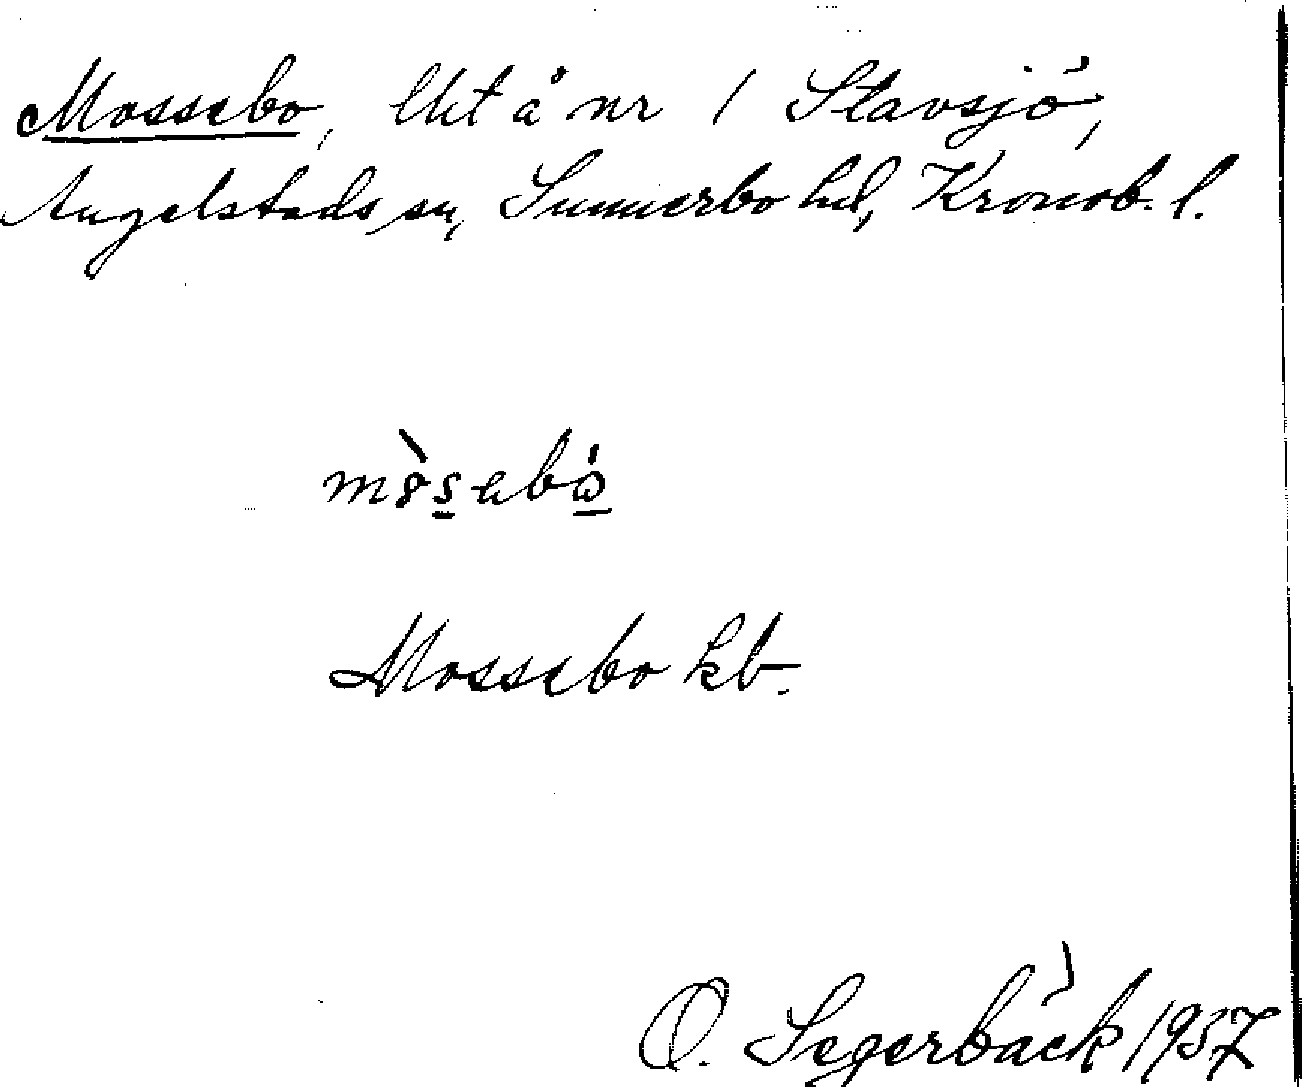 Mossebo, lht å nr 1 Stavsjö,
Angelstads sn, Sunnerbo hd, Kronob. l.
Mossebo kb.
O. Segerbäck 1937